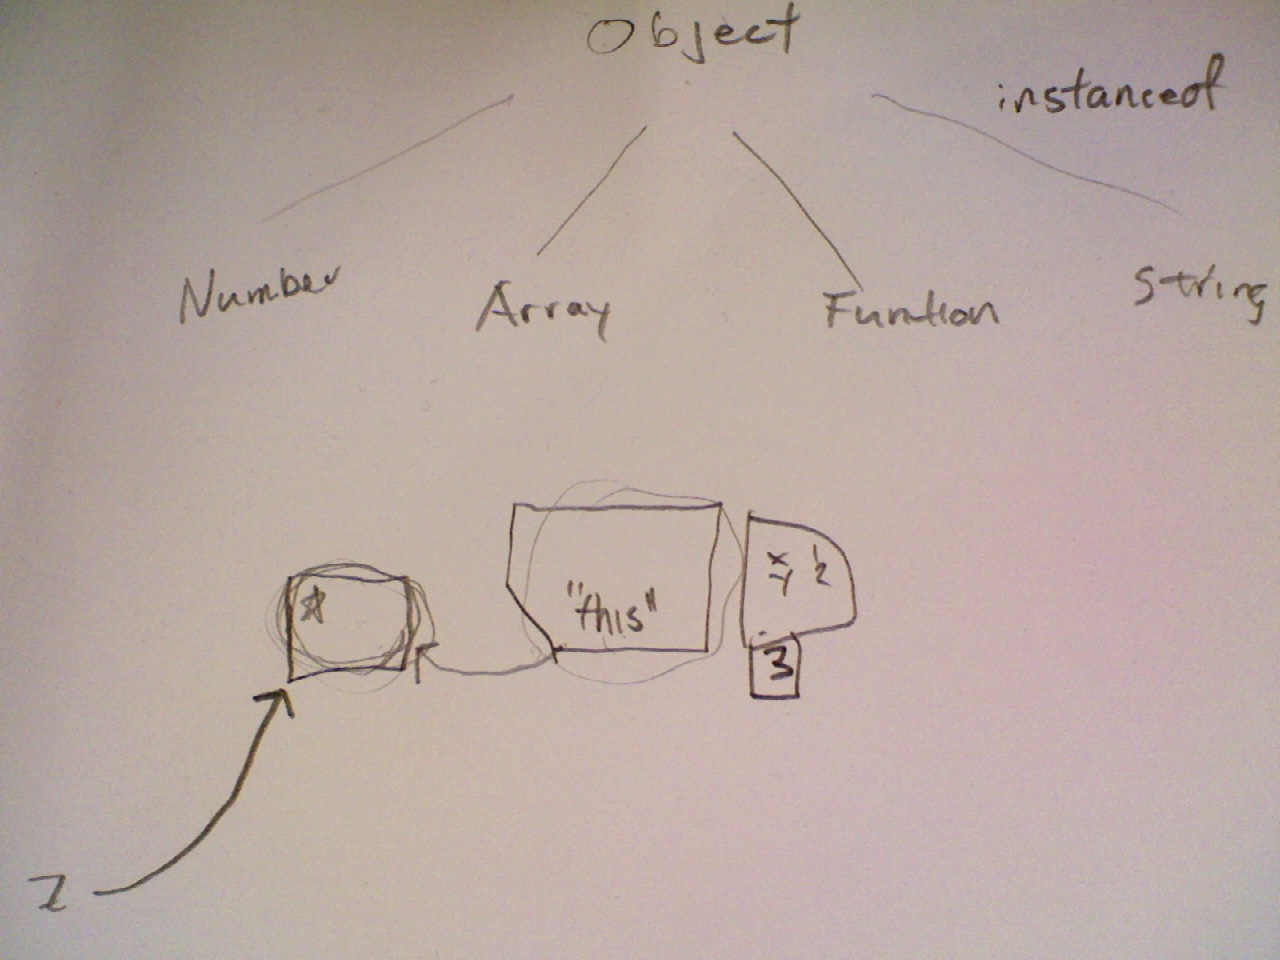 Object
instanceof
Number
Array
Funtion
String
"this"
x 1
y 2
3